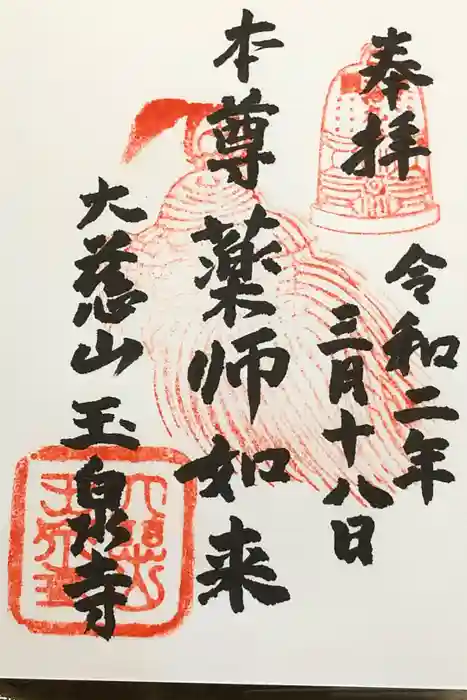 奉拝
令和二年
三月十八日
本尊薬師如来
大慈山玉泉寺